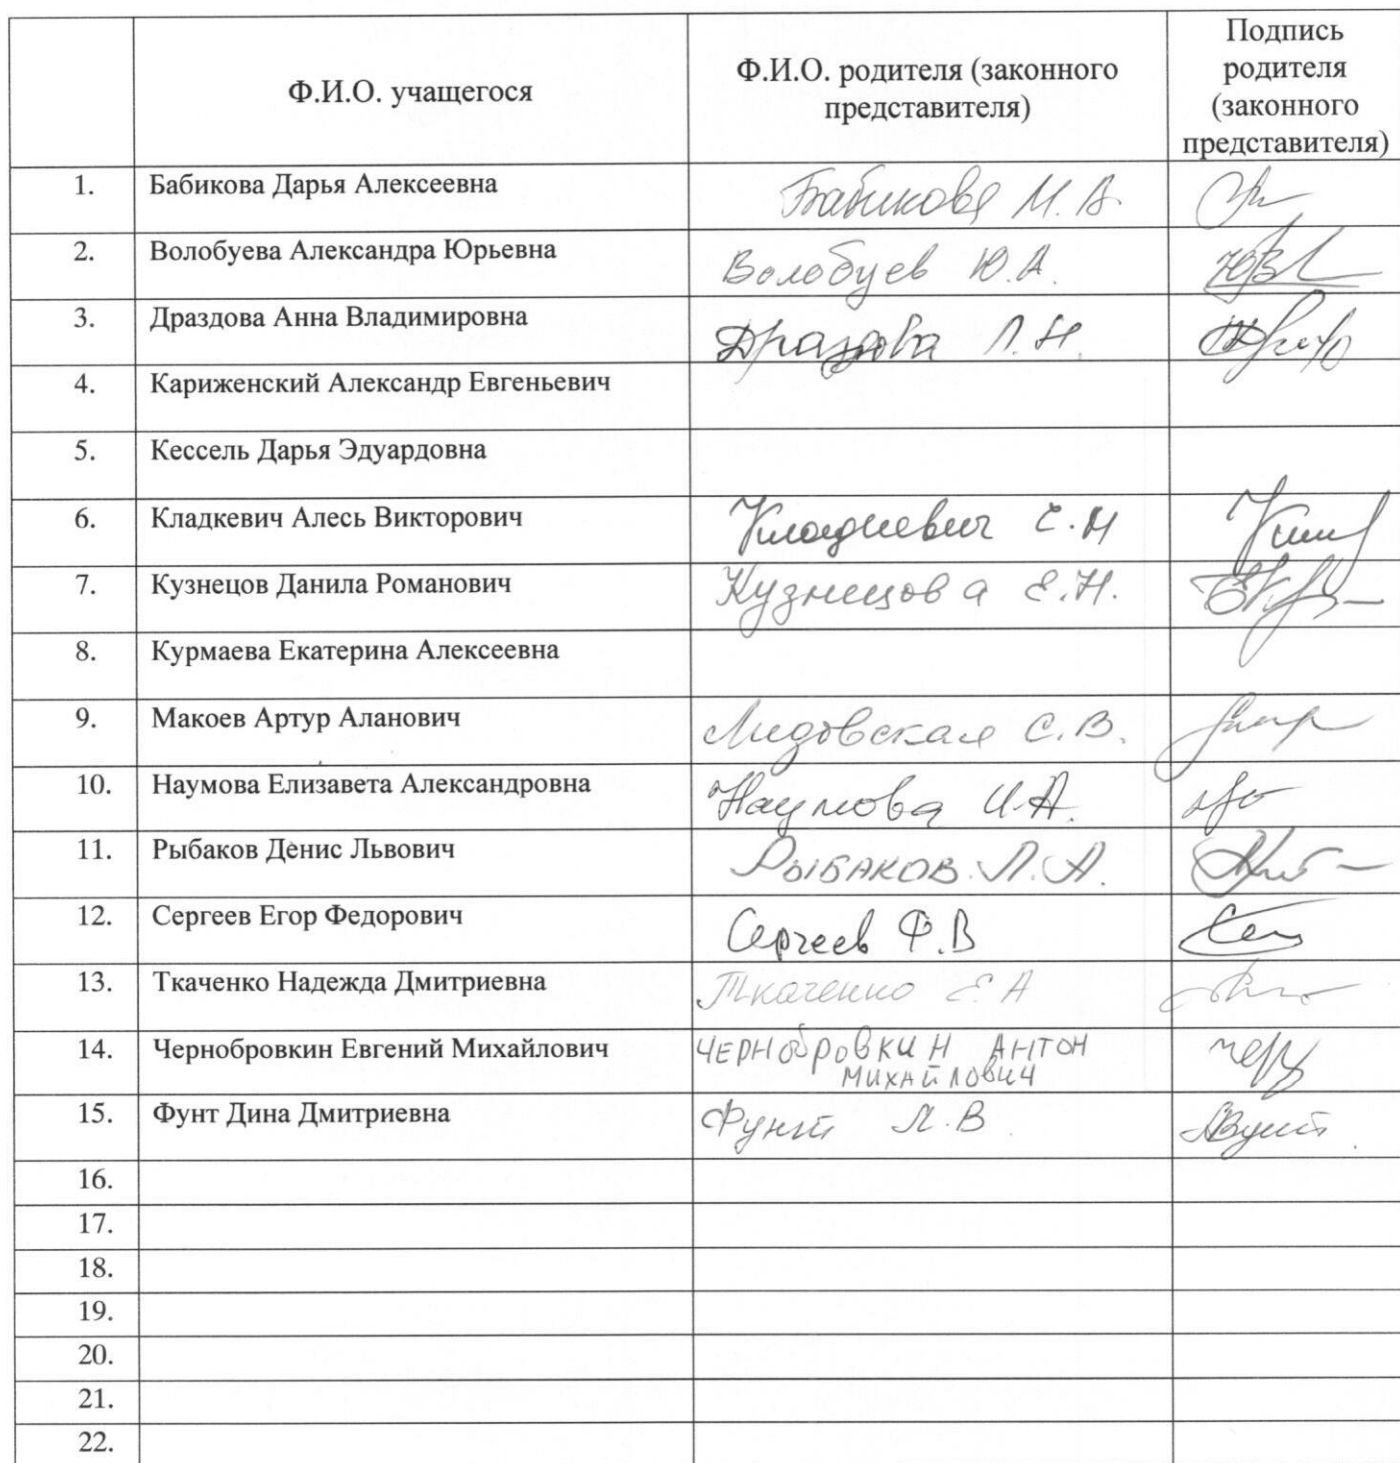 Ф.И.О. учащегося
Ф.И.О. родителя (законного
представителя)
Подпись
родителя
(законного
представителя)
1. Бабикова Дарья Алексеевна Бабикова М.А.
2. Волобуева Александра Юрьевна Волобуев Ю.А.
3. Драздова Анна Владимировна Драздова Л.Н.
4. Кариженский Александр Евгеньевич
5. Кессель Дарья Эдуардовна
6. Кладкевич Алесь Викторович Кладкевич Е.Н
7. Кузнецов Данила Романович Кузнецова Е.Н.
8. Курмаева Екатерина Алексеевна
9. Макоев Артур Аланович С.В.
10. Наумова Елизавета Александровна Наумова И.А.
11. Рыбаков Денис Львович РЫБАКОВ Л.А.
12. Сергеев Егор Федорович Сергеев Ф.В
13. Ткаченко Надежда Дмитриевна Ткаченко Е.А
14. Чернобровкин Евгений Михайлович ЧЕРНОБРОВКИН АНТОН
МИХАЙЛОВИЧ
15. Фунт Дина Дмитриевна Фунт Л.В
16.
17.
18.
19.
20.
21.
22.